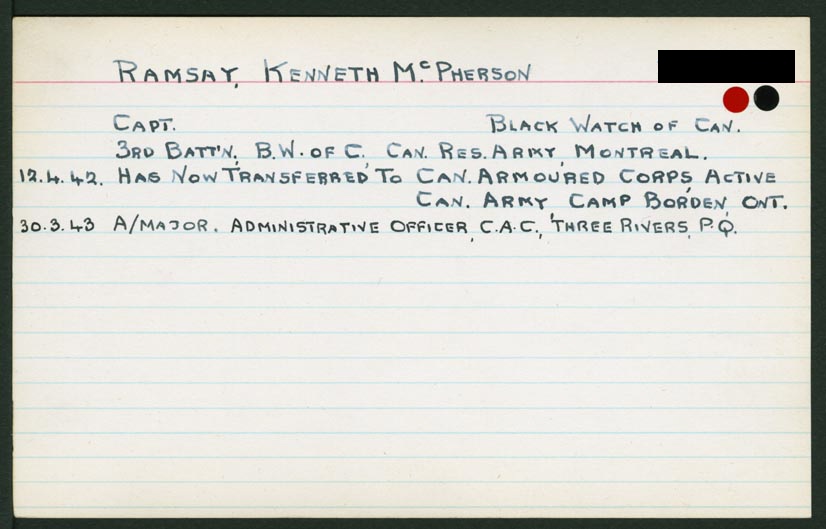 RAMSAY, KENNETH McPHERSON
CAPT. BLACK WATCH OF CAN.
3RD BATT'N, B.W. OF C., CAN. RES. ARMY, MONTREAL.
12.4.42. HAS NOW TRANSFERRED TO CAN. ARMOURED CORPS, ACTIVE
CAN. ARMY, CAMP BORDEN, ONT.
30.3.43 A/MAJOR. ADMINISTRATIVE OFFICER, C.A.C., THREE RIVERS, P.Q.